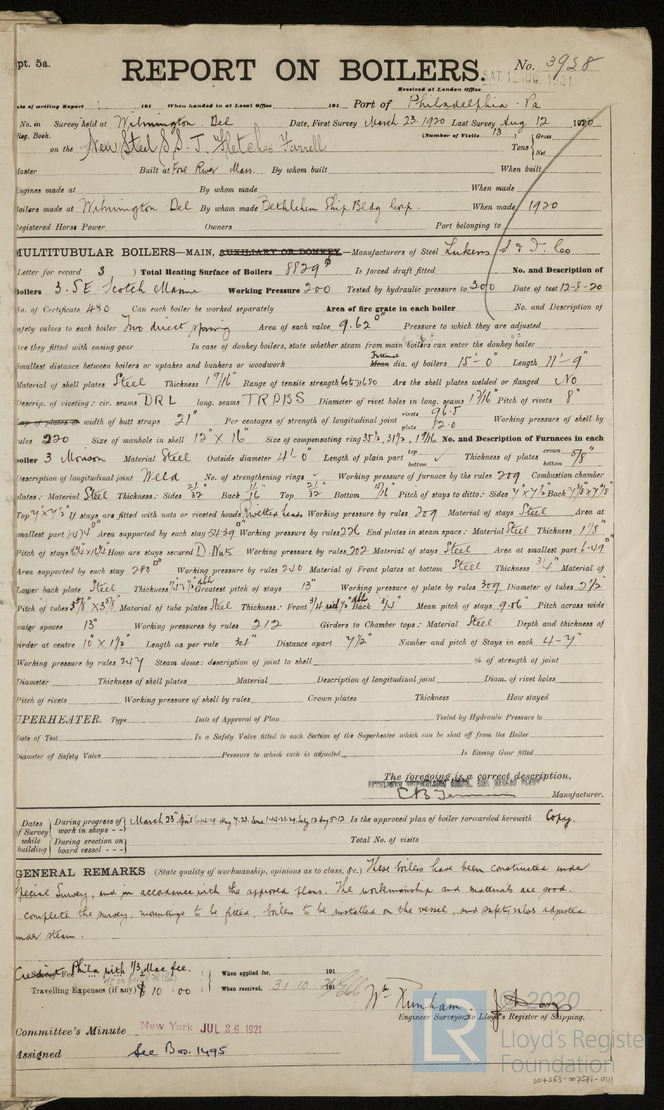 pt. 5a.
REPORT ON BOILERS.
No. 3958
Received at London Office SAT. 13 AUG. 1921
ate of writing Report 191 When handed in at Local Office 191 Port of Philadelphia Pa
No. in Survey held at Wilmington Del Date, First Survey March 23. 1920 Last Survey Aug 12 1920
Reg. Book. (Number of Visits 13)
on the New Steel S.S. J. Fletcher Farrell Tons { Gross Net
Master Built at Fore River Mass. By whom built When built
Engines made at By whom made When made
Boilers made at Wilmington Del By whom made Bethlehem Ship Bldg Corp. When made 1920
Registered Horse Power Owners Port belonging to
MULTITUBULAR BOILERS—MAIN, AUXILIARY OR DONKEY.—Manufacturers of Steel Lukens S & I. Co
Letter for record S ) Total Heating Surface of Boilers 8829 Is forced draft fitted No. and Description of
Boilers 3. S.E. Scotch Marine Working Pressure 200 Tested by hydraulic pressure to 300 Date of test 12-8-20
No. of Certificate 480 Can each boiler be worked separately Area of fire grate in each boiler No. and Description of
safety valves to each boiler Two direct spring Area of each valve 9.62 Pressure to which they are adjusted
Are they fitted with easing gear In case of donkey boilers, state whether steam from main boilers can enter the donkey boiler
Smallest distance between boilers or uptakes and bunkers or woodwork Mean dia. of boilers 15'-0" Length 11'-9"
Material of shell plates Steel Thickness 1 9/16" Range of tensile strength Are the shell plates welded or flanged No
Descrip. of riveting: cir. seams DRL long. seams TRDBS Diameter of rivet holes in long. seams 1 7/16 Pitch of rivets 8"
Lap of plates or width of butt straps 21" Per centages of strength of longitudinal joint rivets 96.5 plate 82.0 Working pressure of shell by
rules 220 Size of manhole in shell 12" X 16" Size of compensating ring No. and Description of Furnaces in each
boiler 3 Morison Material Steel Outside diameter 4'-0" Length of plain part top bottom Thickness of plates crown bottom 5/8"
Description of longitudinal joint Weld No. of strengthening rings Working pressure of furnace by the rules 209 Combustion chamber
plates: Material Steel Thickness: Sides 21/32 Back Top 21/32 Bottom Pitch of stays to ditto: Sides Back
Top If stays are fitted with nuts or riveted heads riveted heads Working pressure by rules 209 Material of stays Steel Area at
smallest part Area supported by each stay Working pressure by rules 226 End plates in steam space: Material Steel Thickness 1 1/8"
Pitch of stays How are stays secured D. Nuts Working pressure by rules 202 Material of stays Steel Area at smallest part 6.49
Area supported by each stay 280 Working pressure by rules 240 Material of Front plates at bottom Steel Thickness 3/4" Material of
Lower back plate Steel Thickness Greatest pitch of stays 13" Working pressure of plate by rules 309 Diameter of tubes 2 1/2"
Pitch of tubes Material of tube plates Steel Thickness: Front Back 3/4" Mean pitch of stays 9.06" Pitch across wide
water spaces 13" Working pressures by rules 212 Girders to Chamber tops: Material Steel Depth and thickness of
girder at centre 10" X 1 1/2" Length as per rule 34" Distance apart 7 1/2" Number and pitch of Stays in each 4-7"
Working pressure by rules 247 Steam dome: description of joint to shell % of strength of joint
Diameter Thickness of shell plates Material Description of longitudinal joint Diam. of rivet holes
Pitch of rivets Working pressure of shell by rules Crown plates Thickness How stayed
UPERHEATER. Type Date of Approval of Plan Tested by Hydraulic Pressure to
Date of Test Is a Safety Valve fitted to each Section of the Superheater which can be shut off from the Boiler
Diameter of Safety Valve Pressure to which each is adjusted Is Easing Gear fitted
The foregoing is a correct description,
Manufacturer.
Dates of Survey while building { During progress of work in shops -- March 23 Is the approved plan of boiler forwarded herewith Copy.
During erection on board vessel --- Total No. of visits
GENERAL REMARKS (State quality of workmanship, opinions as to class, &c.) These boilers have been constructed under
Special Survey, and in accordance with the approved plans. The workmanship and materials are good.
complete the survey, mountings to be fitted, boilers to be installed on the vessel, and safety valves adjusted
under steam.
Fee Phila with 1/3 Mac fee. When applied for, 191
Travelling Expenses (if any) $ 10 : 00 When received, 31.10 191
Engineer Surveyor to Lloyd's Register of Shipping.
Committee's Minute New York JUL 26 1921
Assigned See Bos. 1495
© 2020
LR
Lloyd's Register
Foundation
007563-007571-0111